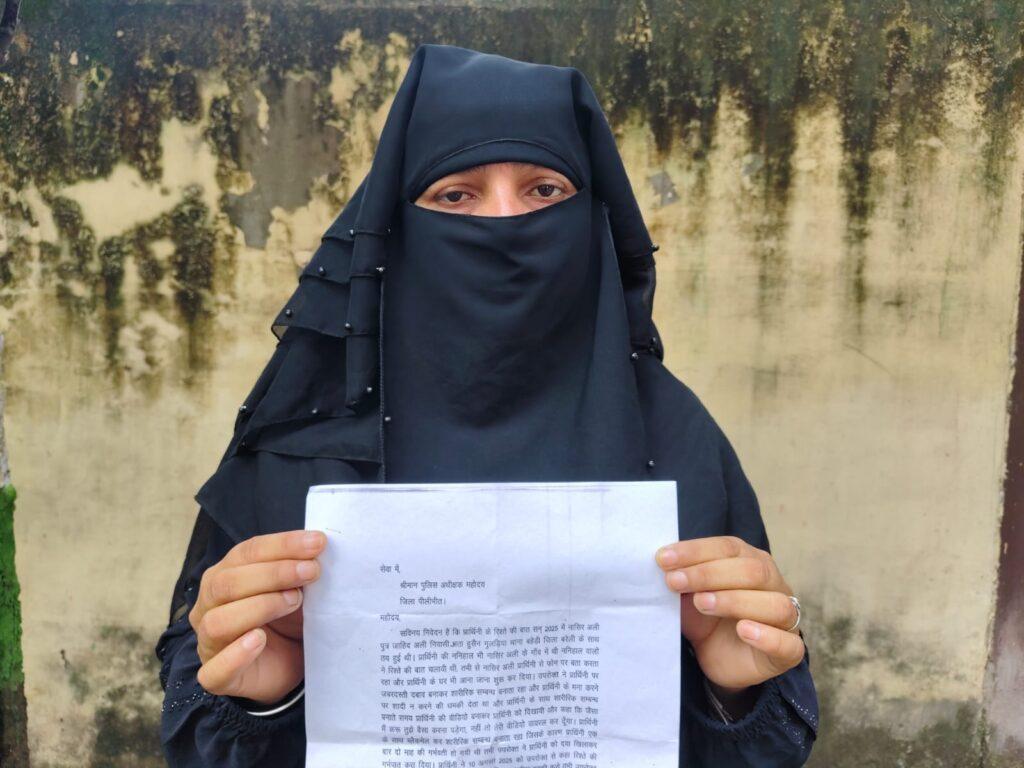 सेवा में,
श्रीमान पुलिस अधीक्षक महोदय
जिला पीलीभीत।
महोदय,
सविनय निवेदन है कि प्रार्थिनी के रिश्ते की बात सन् 2025 में नासिर अली
पुत्र जाहिद अली निवासी हुसैन थाना बहेड़ी जिला बरेली के साथ
तय हुई थी। प्रार्थिनी की ननिहाल भी नासिर अली के गाँव में थी ननिहाल वालो
ने रिश्ते की बात चलायी थी, तभी से नासिर अली प्रार्थिनी से फोन पर बात करता
रहा और प्रार्थिनी के घर भी आना जाना शुरू कर दिया। उपरोक्त ने प्रार्थिनी पर
जबरदस्ती दबाव बनाकर शारीरिक सम्बन्ध बनाता रहा और प्रार्थिनी के मना करने
पर शादी न करने की धमकी देता था और प्रार्थिनी के साथ शारीरिक सम्बन्ध
बनाते समय प्रार्थिनी की वीडियो बनाकर प्रार्थिनी को दिखायी और कहा कि जैसा
मैं करू तुझे वैसा करना पड़ेगा, नहीं तो तेरी वीडियो वायरल कर दूँगा। प्रार्थिनी
के साथ ब्लैकमेल कर शारीरिक सम्बन्ध बनाता रहा जिसके कारण प्रार्थिनी एक
बार दो माह की गर्भवती हो गयी थी तभी उपरोक्त ने प्रार्थिनी को दवा खिलाकर
गर्भपात करा दिया। प्रार्थिनी ने 10 अगस्त 2025 को उपरोक्त से कहा रिश्ते की